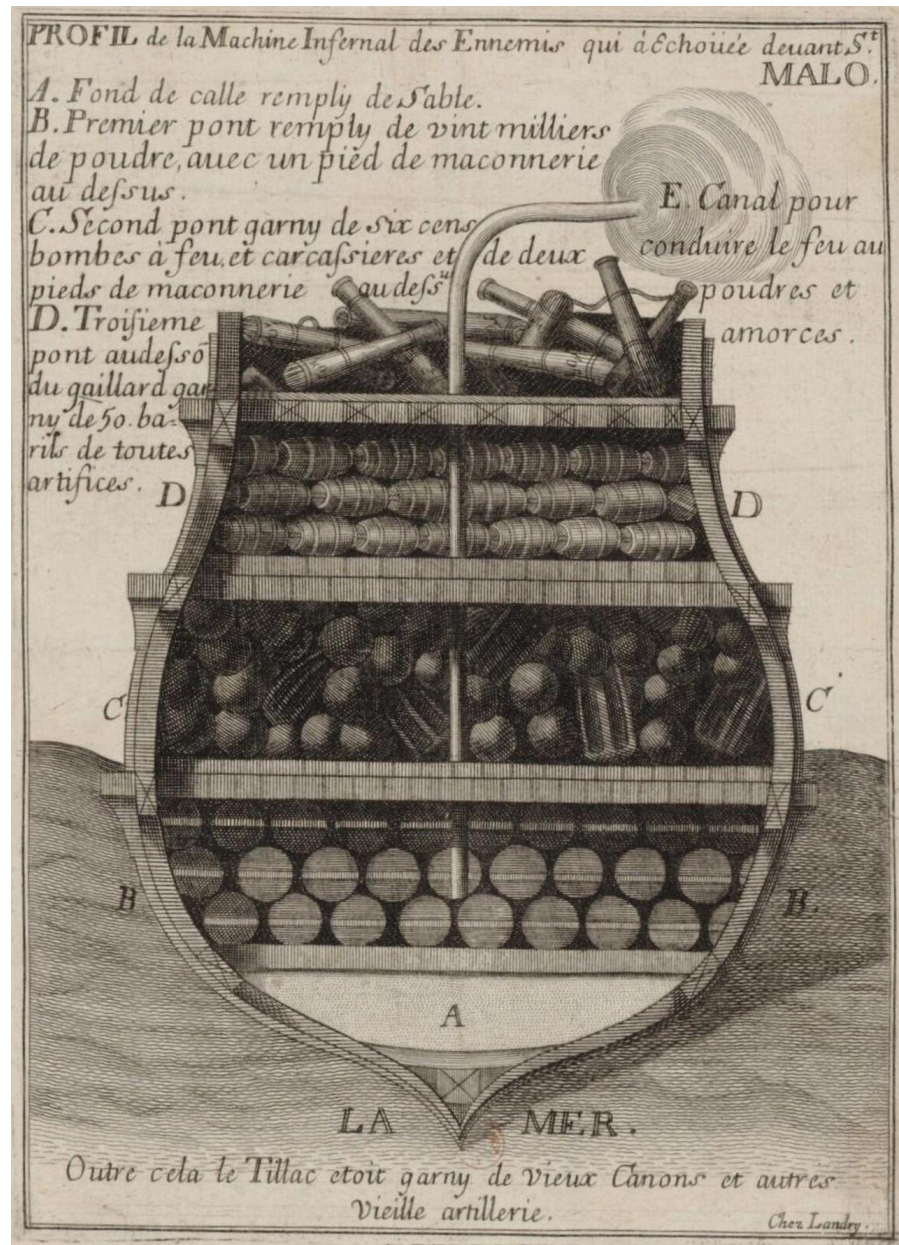 PROFIL de la Machine Infernal des Ennemis qui à Echoüée deuant S.t
MALO.
A. Fond de calle remply de Sable.
B. Premier pont remply de vint milliers
de poudre, auec un pièd de maconnerie
au deſsus.
C. Sècond pont garny de six cens
bombes à feu, et carcaſsieres et de deux
pieds de maconnerie au deſs.us
D. Troiſieme
pont audeſsō
du gaillard gar
ny de 50. ba=
rils de toutes
artifices.
E. Canal pour
conduire le feu au
poudres et
amorces.
D D
C C
B B.
A
LA MER.
Outre cela le Tillac etoit garny de vieux Canons et autres
Vieille artillerie.
Chez Landry.